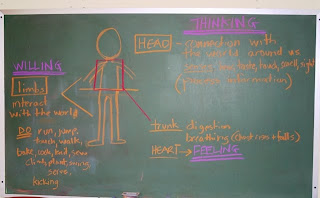 THINKING
HEAD - connection with
the world around us
senses, hear, taste, touch, smell, sight
information)
WILLING
limbs
interact
with the world
DO run, jump
touch, walk,
bake, cook, knit, sew
climb, plant, swing
kicking
trunk digestion
breathing (chest rises + falls)
HEART → FEELING